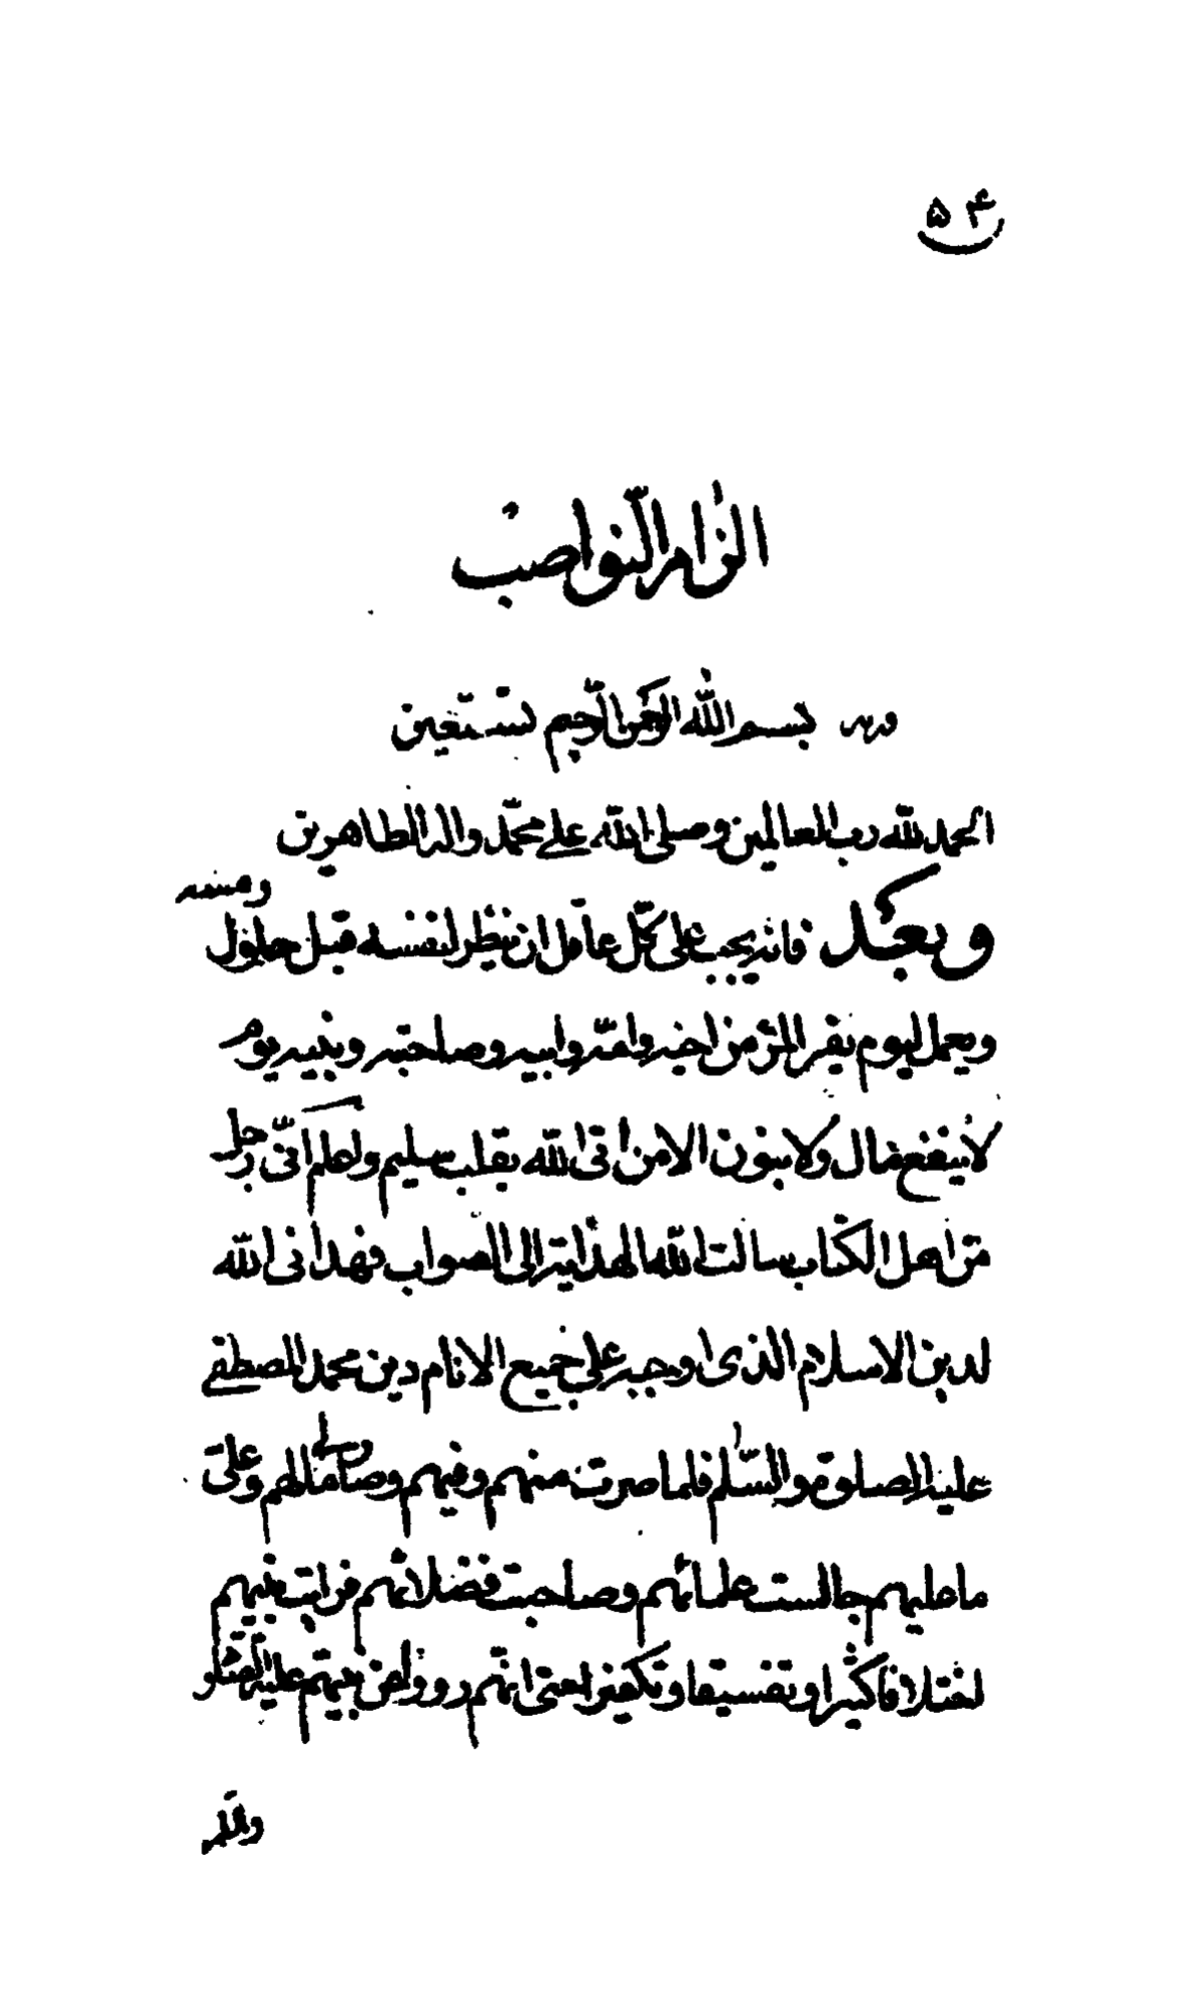 ۵۴
الزام النواصب
وبه بسم الله الرحمن الرحيم نستعين
الحمد لله رب العالمين وصلى الله على محمّد واله الطاهرين
وبعد فانه يجب على كلّ عاقل ان ينظر لنفسه قبل حلول رمسه
ويعمل ليوم يفر المرء من اخيه وامّه وابيه وصاحبته وبنيه يوم
لا ينفع مال ولا بنون الا من اتى الله بقلب سليم واعلم انّى رجل
من اهل الكتاب سالت الله الهداية الى الصواب فهدانى الله
لدين الاسلام الذى اوجبه على جميع الانام دين محمد المصطفى
عليه الصلوة والسّلم فلما صرت منهم وفيهم وصار لى ما لهم وعلىّ
ما عليهم جالست علمائهم وصاحبت فضلائهم فرايت بينهم
اختلافا كثيرا وتفسيقا وتكفيرا حتى انهم رووا عن نبيهم عليه الصلو
واله